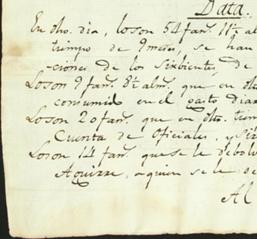 Data.
En dho. dia, loson 54 fans. 11 al
tiempo de 9 meses, se han
ciones de los Sirvientes, de
Loson 9 fans. 8 alms. que en
consumid en el gasto Diar
Loson 20 fans. que en tiem
Cuenta de Oficiales, y
Loson 14 fans. que se le debol
Aguirre, a quien se le de
Al